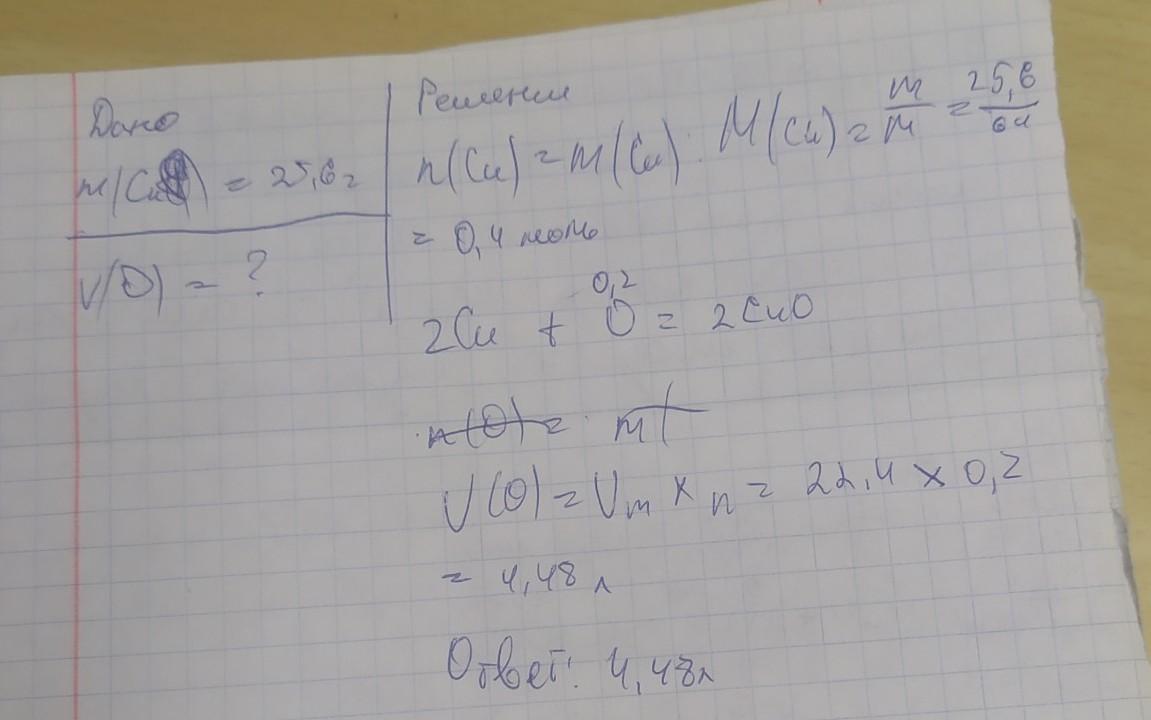 Дано
m(Cu) = 25,6 г
V(O) = ?
Решение
n(Cu) = m(Cu) : M(Cu) = m/M = 25,6/64
= 0,4 моль
0,2
2Cu + O = 2CuO
n(O) = m
V(O) = Vm × n = 22,4 × 0,2
= 4,48 л
Ответ: 4,48л